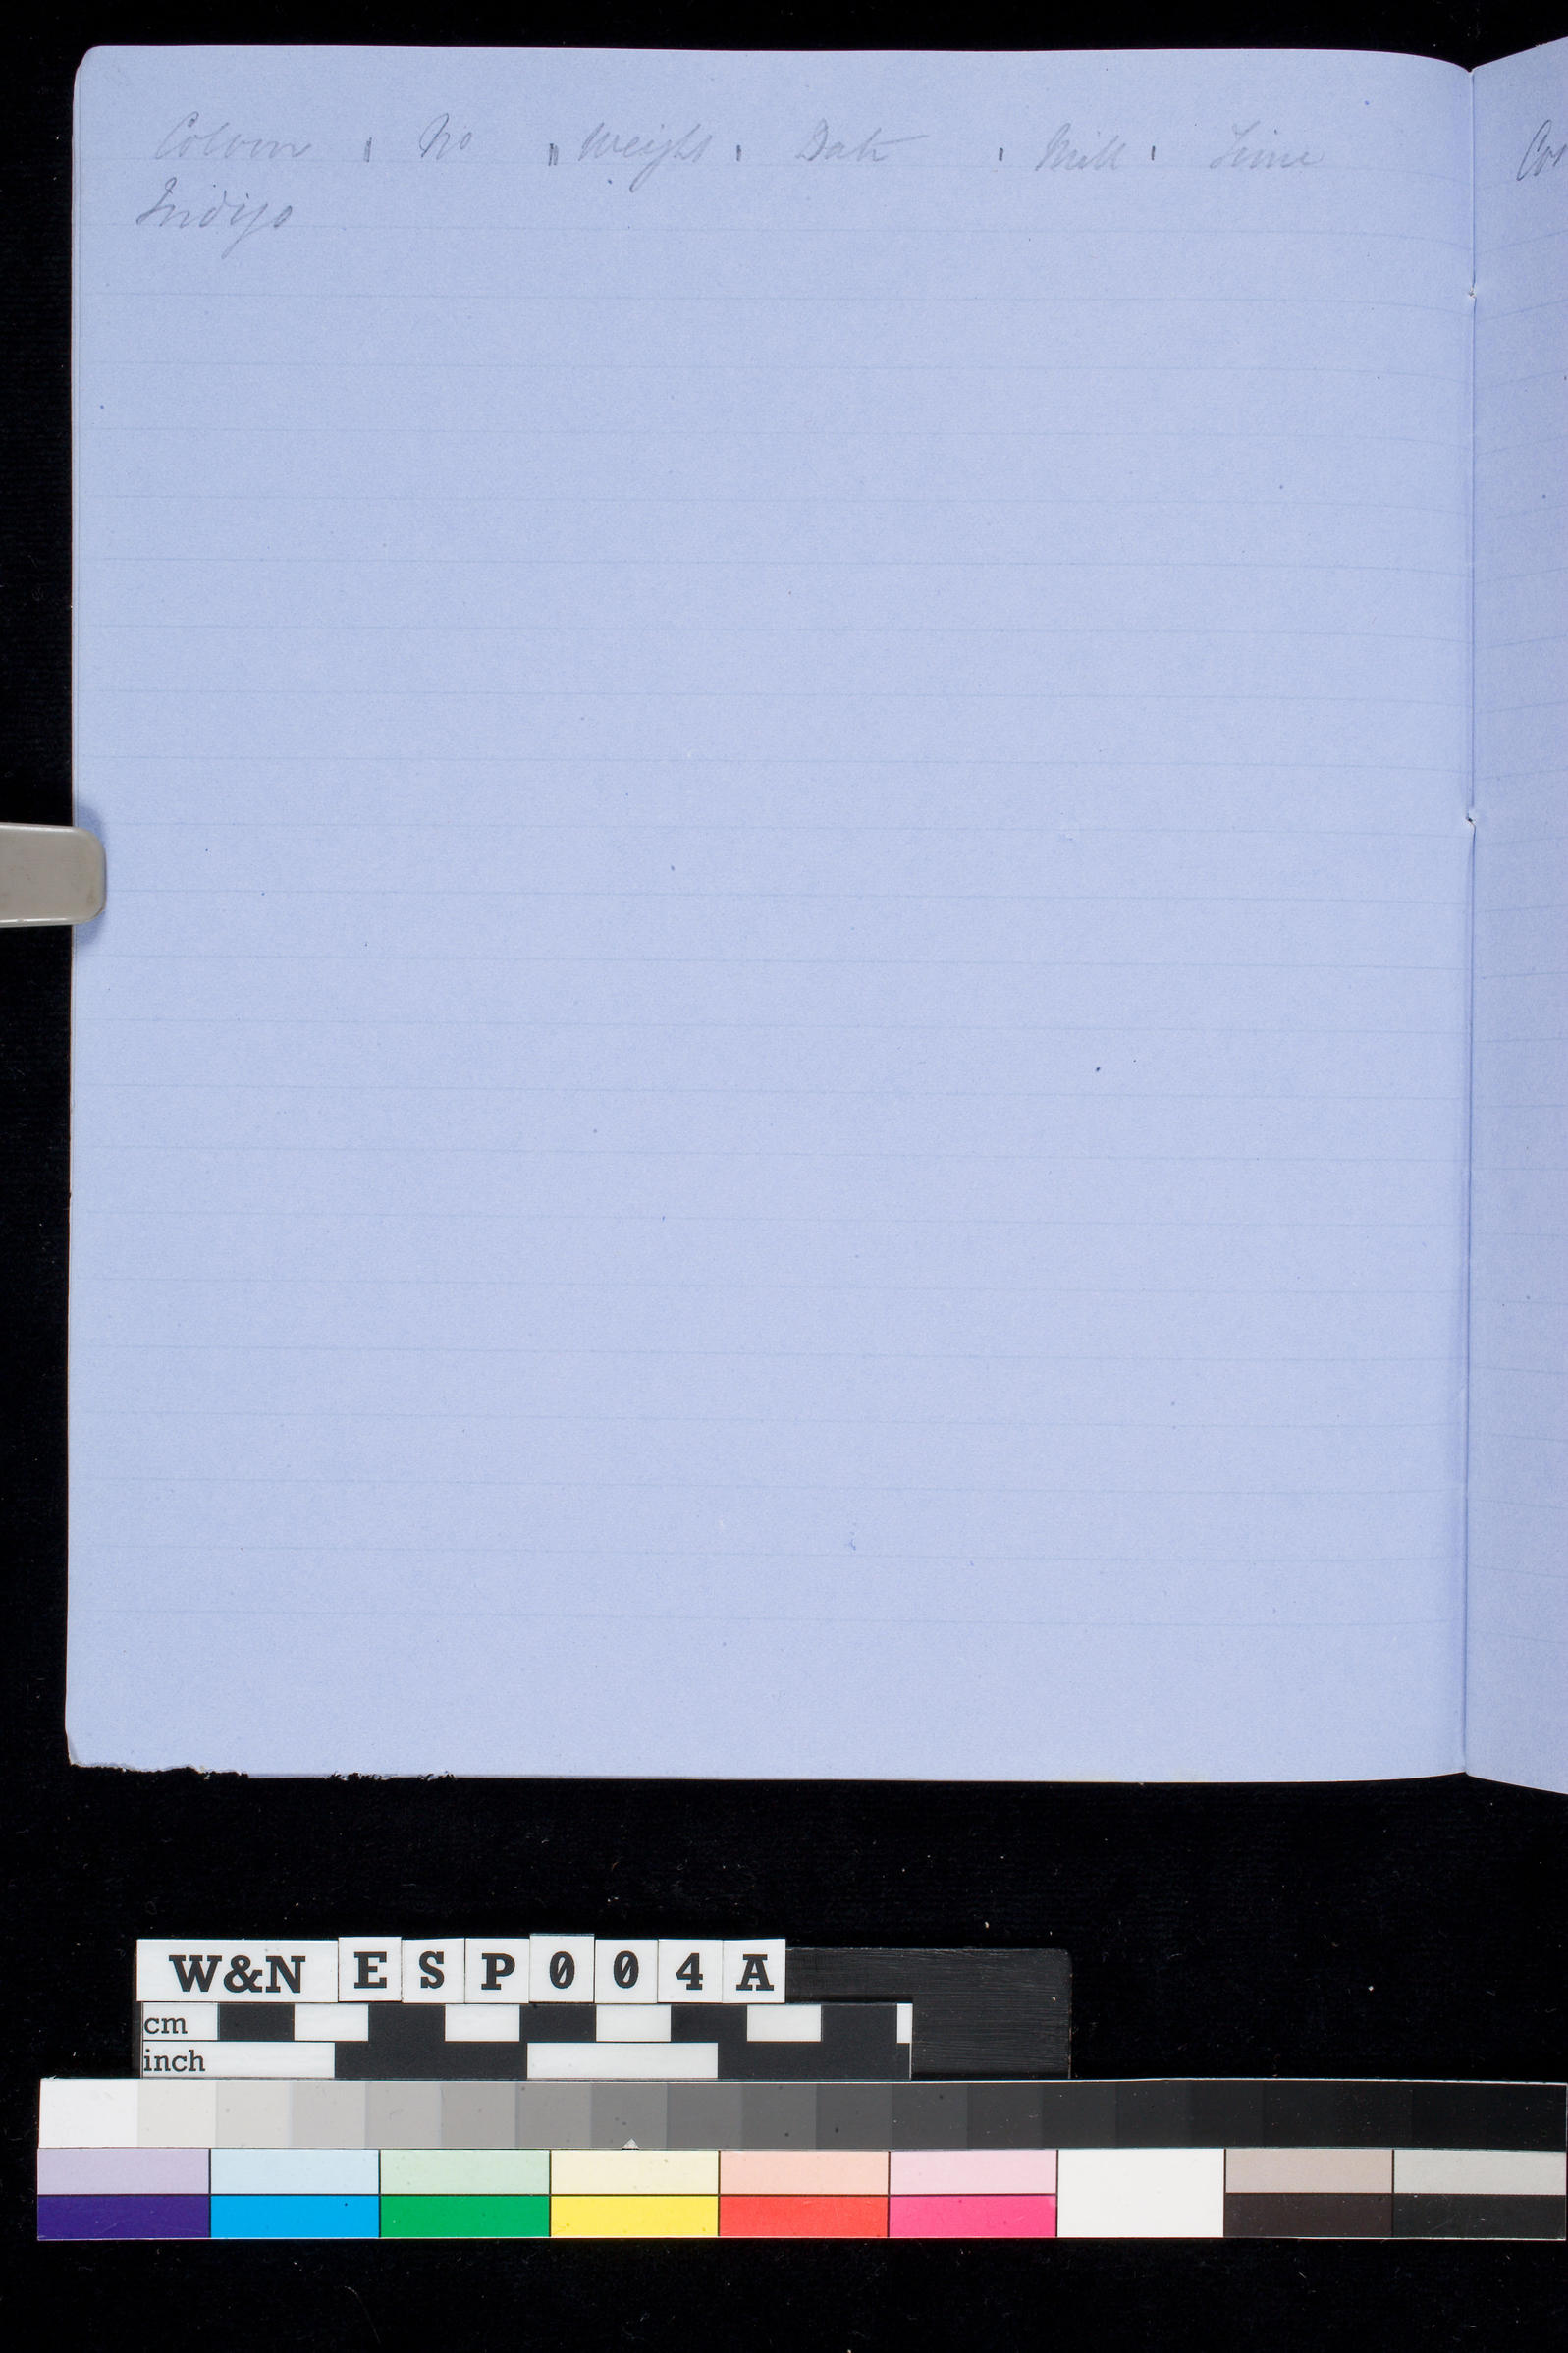 Colour No Weight Date Mill Time
Indigo
W&N ESP004A
cm
inch